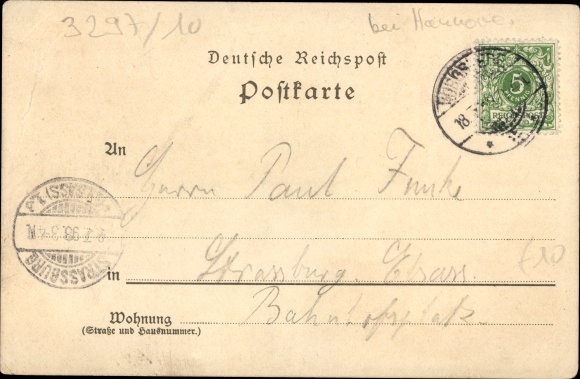 3297/10
bei Hannover
Deutsche Reichspost
Postkarte
5
REICHSPOST
18
An
Herrn Paul Funke
STRASSBURG
in Strassburg. Elsass.
Bahnhofsplatz.
Wohnung
(Straße und Hausnummer.)